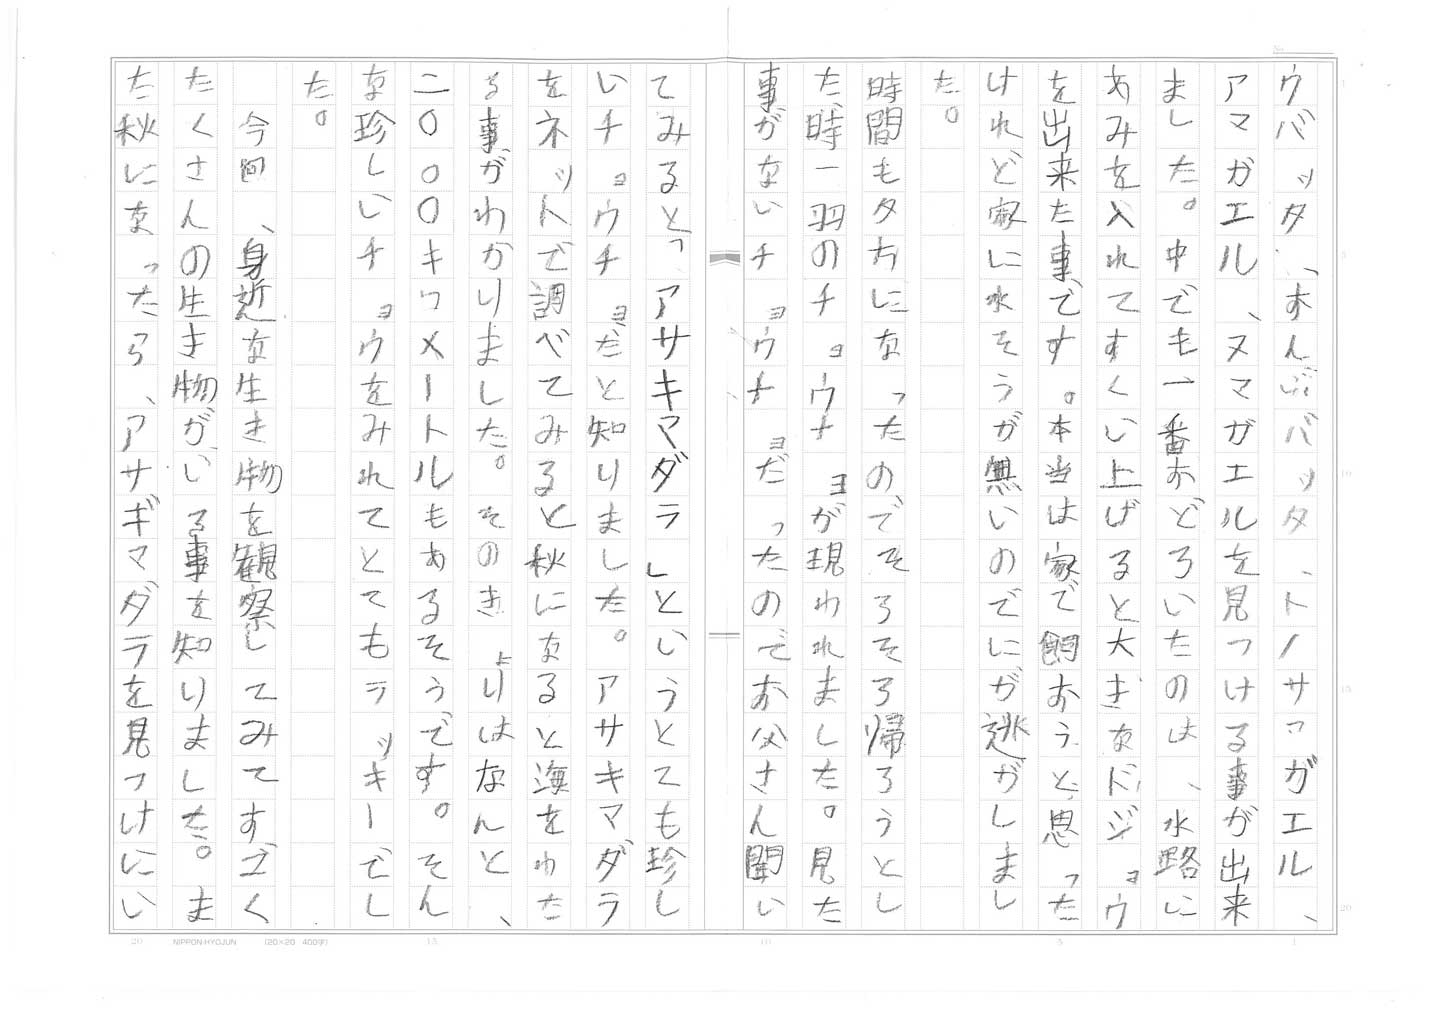 ウバッタ、おんぶバッタ、トノサマガエル、
アマガエル、ヌマガエルを見つける事が出来
ました。中でも一番おどろいたのは、水路に
あみを入れてすくい上げると大きなドジョウ
を出来た事です。本当は家で飼おうと思った
けれど家に水そうが無いのでにが逃がしまし
た。
時間もタ方になったのでそろそろ帰ろうとし
た時一羽のチョウチョが現われました。見た
事がないチョウチョだったのでお父さん聞い
てみると「アサキマダラ」というとても珍し
いチョウチョだと知りました。アサキマダラ
をネットで調べてみると秋になると海をわた
る事がわかりました。そのきょりはなんと、
二〇〇〇キロメートルもあるそうです。そん
な珍しいチョウをみれてとてもラッキーでし
た。
今回、身近な生き物を観察してみてすごく
たくさんの生き物がいる事を知りました。ま
た秋になったら、アサギマダラを見つけにい
No.
1
5
10
15
20
20
NIPPON-HYOJUN (20×20 400字)
15
10
5
1